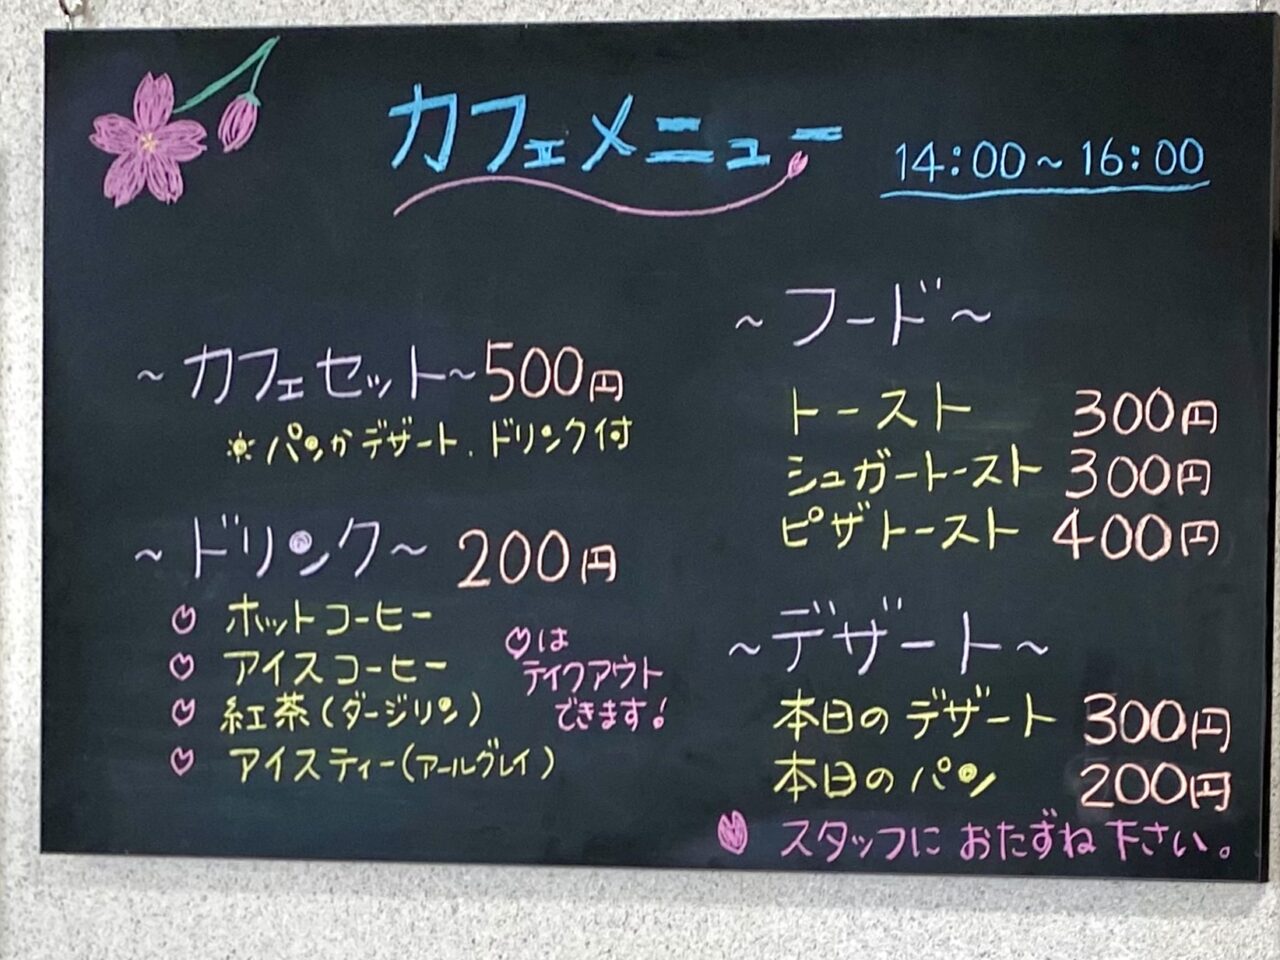 カフェメニュー 14:00～16:00
～カフェセット～500円
※パンかデザート、ドリンク付
～ドリンク～ 200円
ホットコーヒー
アイスコーヒー
紅茶(ダージリン)
アイスティー(アールグレイ)
は
テイクアウト
できます!
～フード～
トースト 300円
シュガートースト 300円
ピザトースト 400円
～デザート～
本日のデザート 300円
本日のパン 200円
スタッフにおたずね下さい。